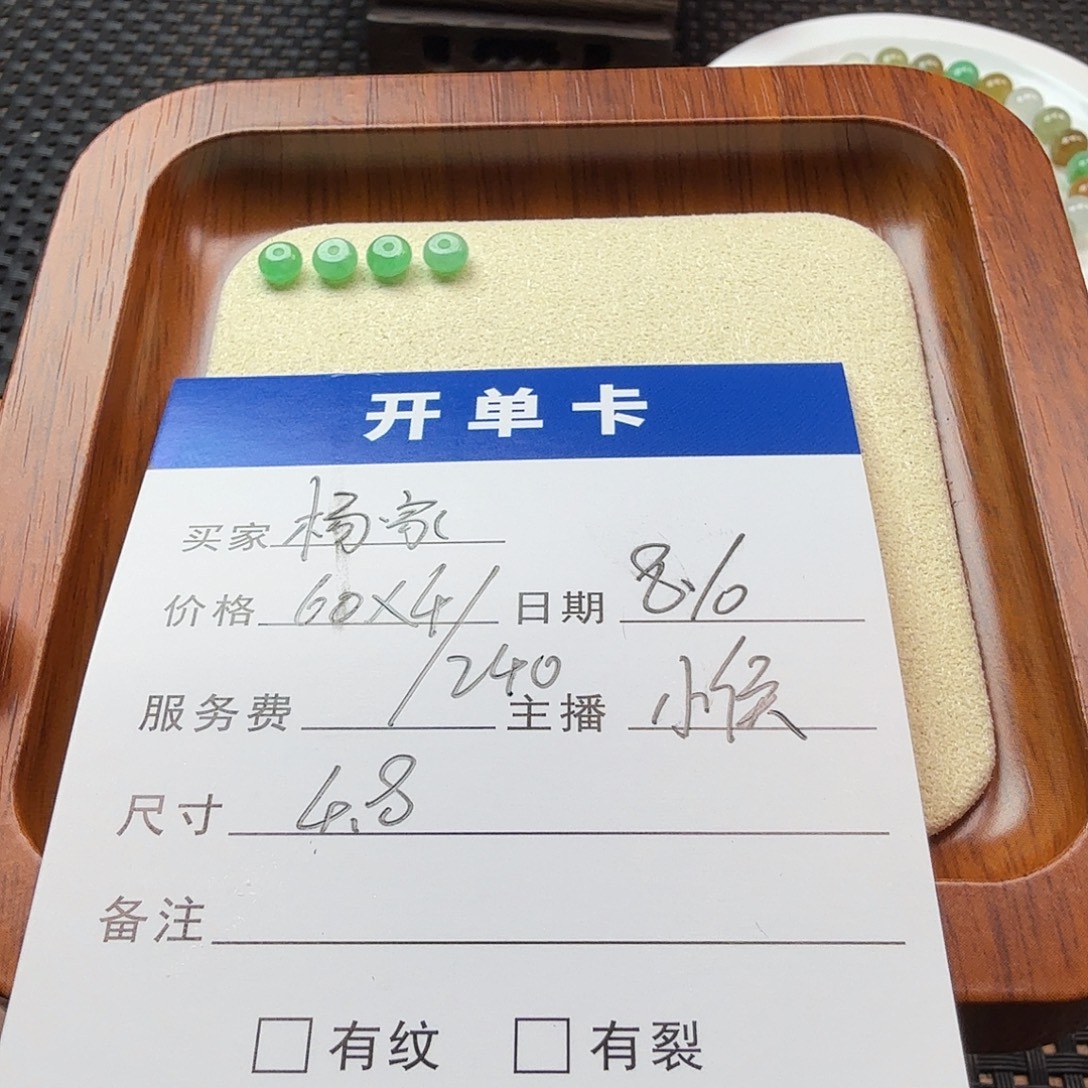 开单卡
买家 杨家
价格 60×4/ 日期 8.10
服务费 /240 主播 小侯
尺寸 4.8
备注
有纹 有裂